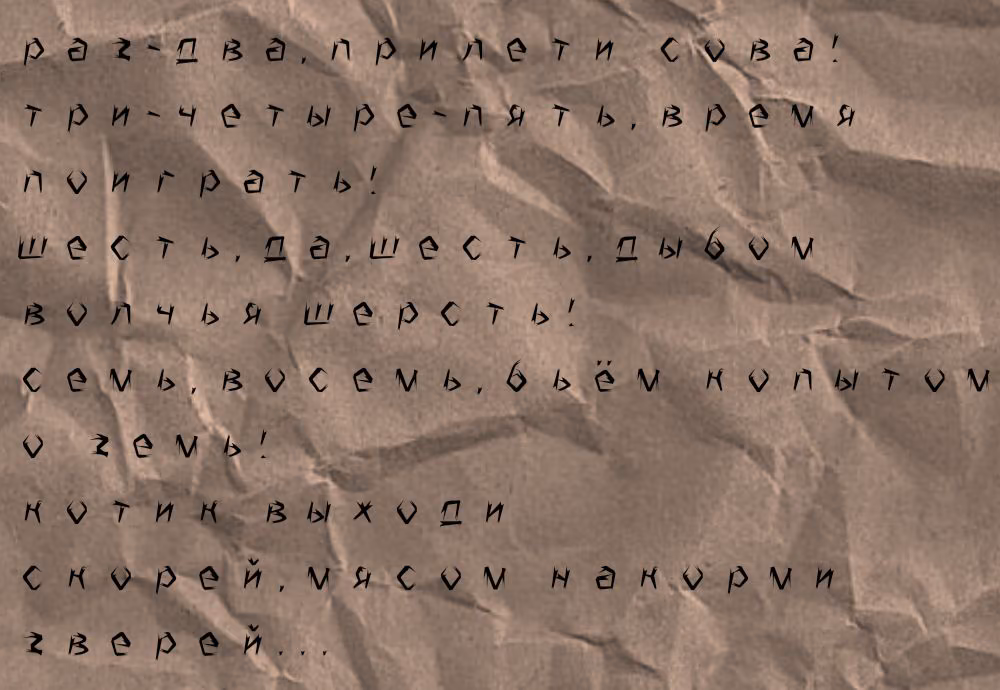 раз-два, прилети сова!
три-четыре-пять, время
поиграть!
шесть, да, шесть, дыбом
волчья шерсть!
семь, восемь, бьём копытом
о земь!
котик выходи
скорей, мясом накорми
зверей...